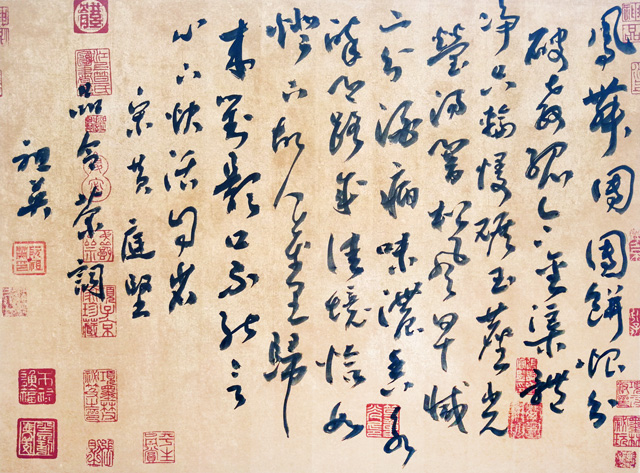 鳳舞團團餅恨分
破教孤令金渠體
净只輪慢碾玉塵光
瑩湯響松風早減
二分酒病味濃香永
醉鄉路成佳境恰如
燈下故人萬里歸
來對影口不能言
心下快活自省
宋黄庭堅
品令茶詞
祖英